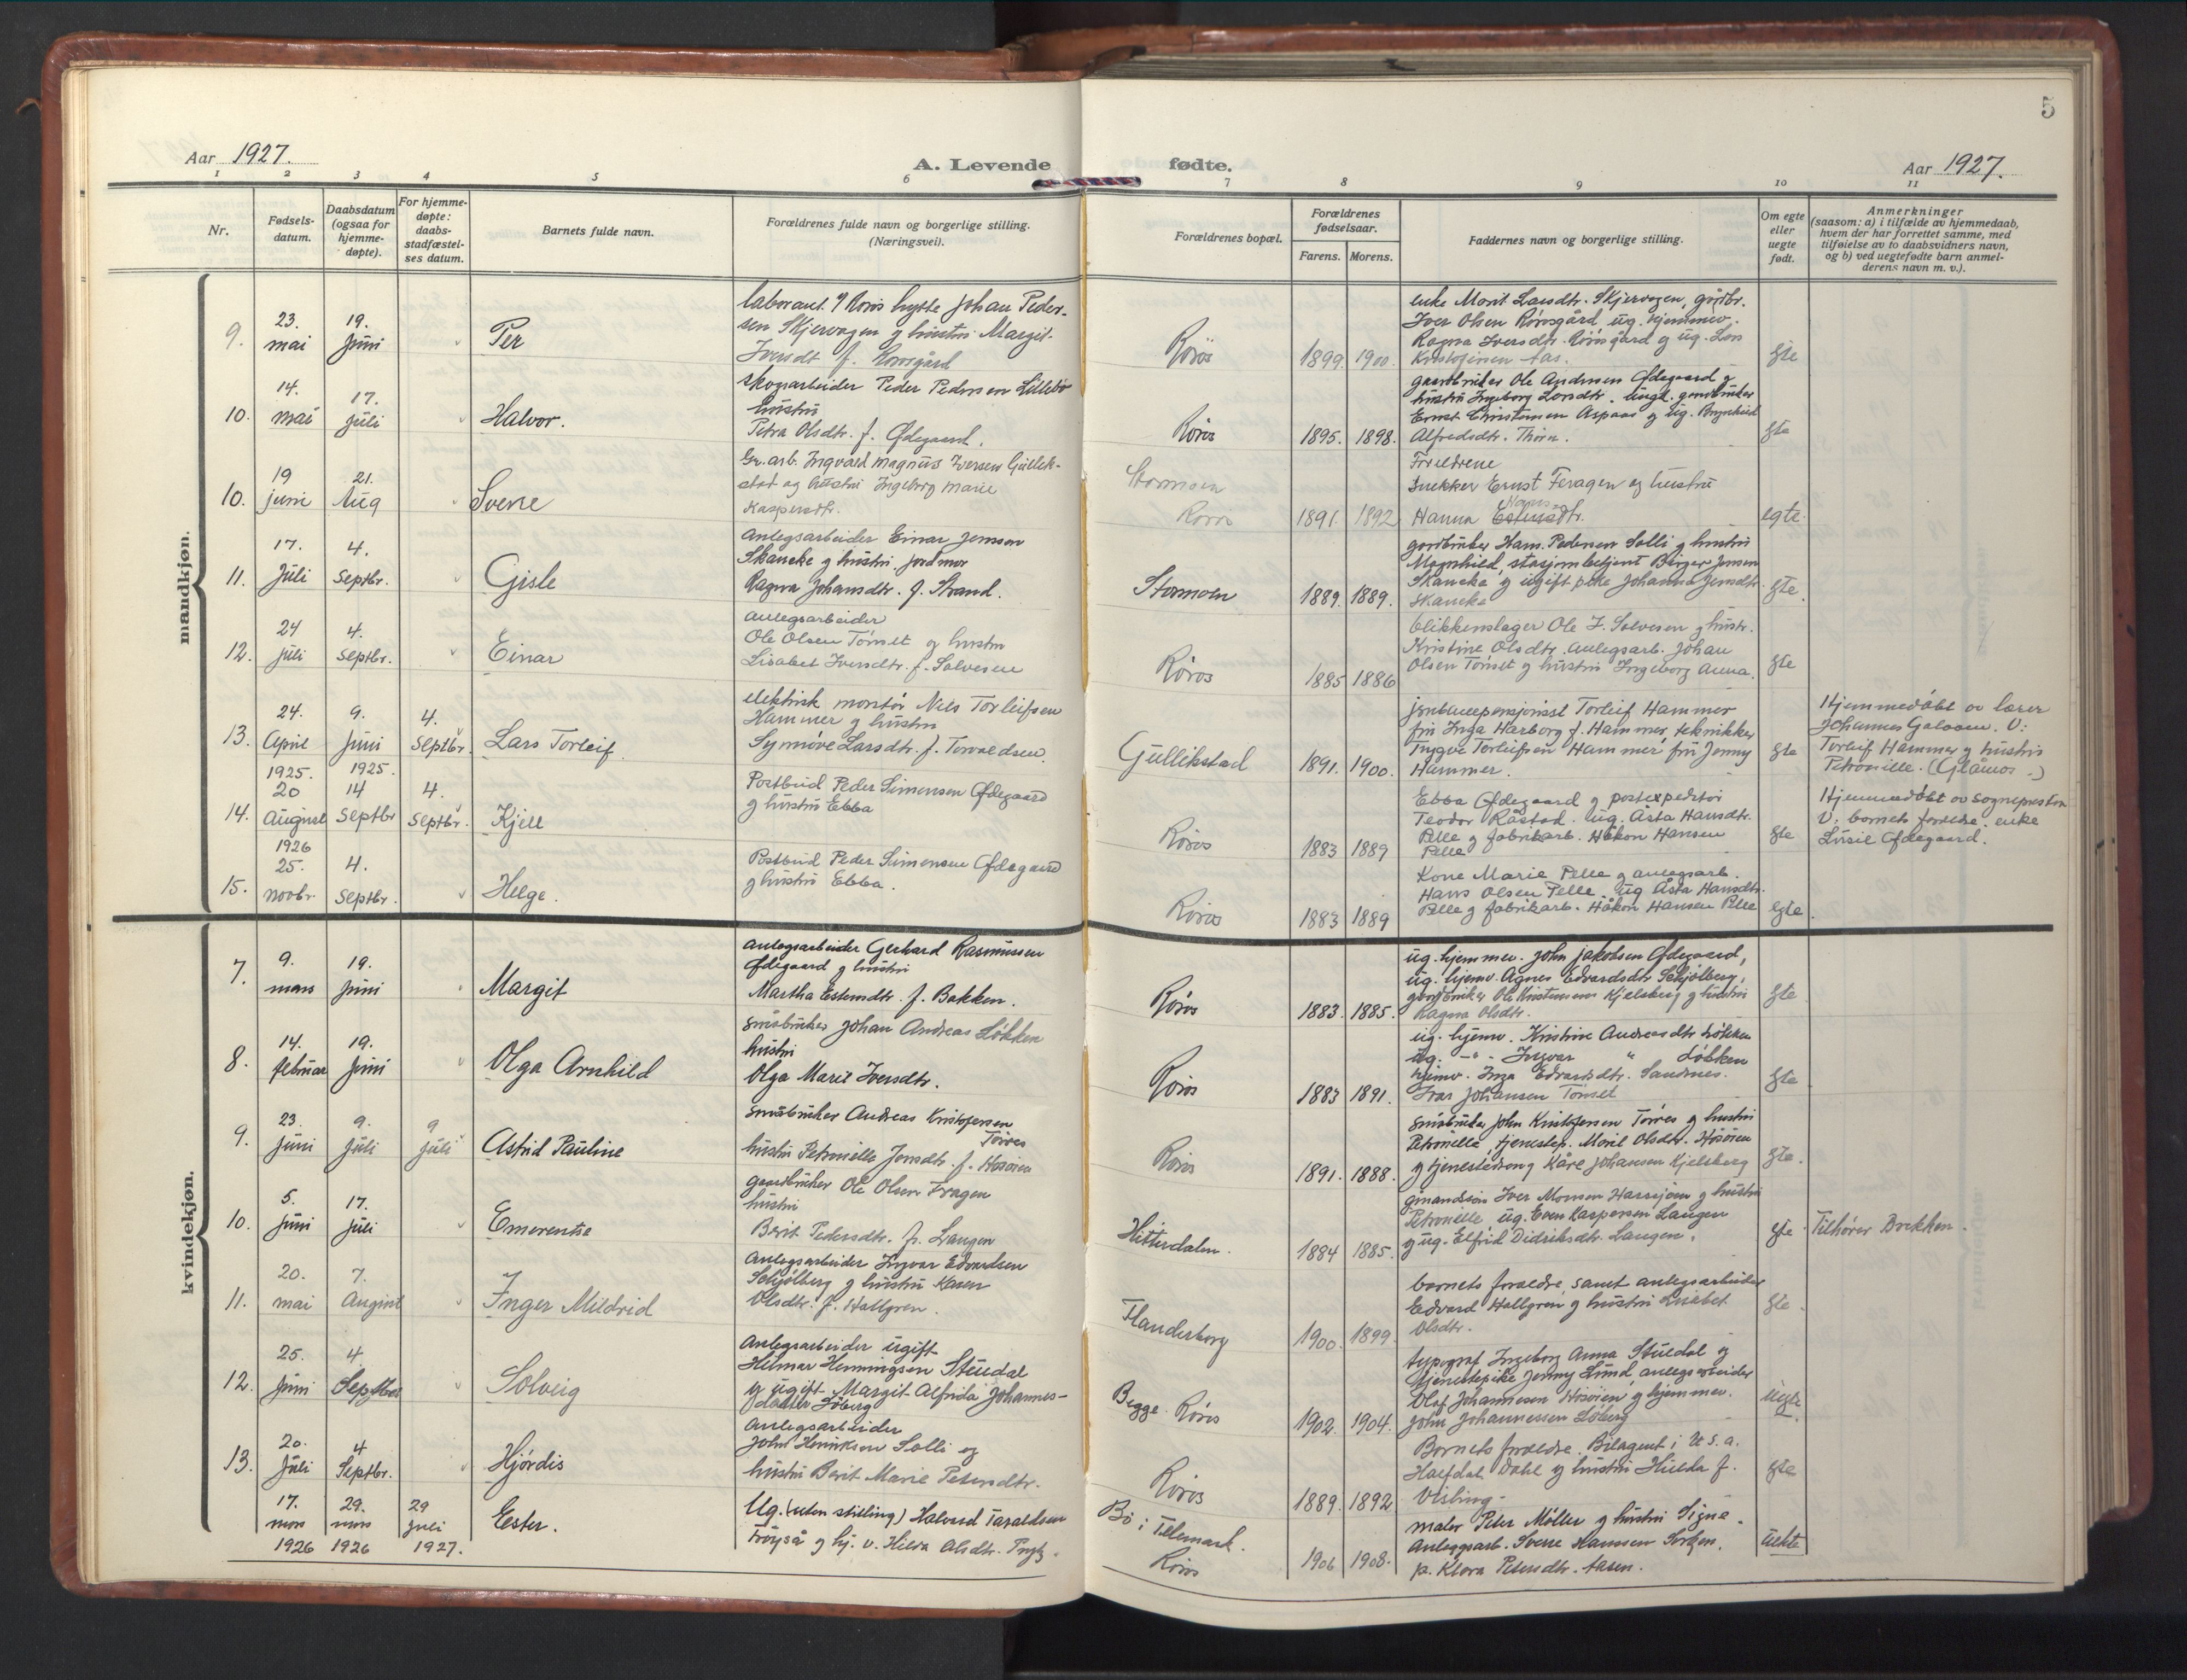 5
Aar 1927.
A. Levende fødte.
Aar 1927.
1 2 3 4 5 6 7 8 9 10 11
Nr.
Fødsels-
datum.
Daabsdatum
(ogsaa for
hjemme-
døpte).
For hjemme-
døpte:
daabs-
stadfæstel-
ses datum.
Barnets fulde navn.
Forældrenes fulde navn og borgerlige stilling.
(Næringsvei).
Forældrenes bopæl.
Forældrenes
fødselsaar.
Farens. Morens.
Faddernes navn og borgerlige stilling.
Om egte
eller
uegte
født.
Anmerkninger
(saasom: a) i tilfælde av hjemmedaab,
hvem der har forrettet samme, med
tilføielse av to daabsvidners navn,
og b) ved uegtefødte barn anmel-
derens navn m. v.).
mandkjøn.
9.
23.
mai
19.
Juni
Per
laborant v/ Røros hytte Johan Peder-
sen Skjervagen og hustru Margit
Iversdt f. Rørosgård
Røros
1899. 1900.
enke Marit Larsdtr. Skjervagen, gårdbr.
Iver Olsen Rørosgård, ug. hjemmev.
Ragna Iversdtr. Rørosgård og ug. Lars
Kristofersen Aas.
Gte
10.
14.
mai
17.
juli
Halvor.
skogsarbeider Peder Pedersen Lillebo
hustru
Petra Olsdtr. f. Ødegaard.
Røros
1895. 1898.
gaardbruker Ole Andersen Ødegaard og
hustru Ingeborg Larsdtr. Ungk. gaardbruker
Ernst Christensen Aspaas og ug. Brynhild
Alfredsdtr. Thorn.
gte
10.
19
juni
21.
Aug
Sverre
Gr. arb. Ingvald Magnus Iversen Gullik-
stad og hustru Ingeborg Marie
Kaspersdtr.
Stormoen
Røros
1891. 1892
Foreldrene
Snekker Ernst Feragen og hustru
Hans
Hanna Estensdtr.
egte.
11.
17.
Juli
4.
Septbr.
Gisle
Anlegsarbeider Einar Jensen
Skancke og hustru. jordmor
Ragna Johansdtr. f. Strand.
Stormoen
1889. 1889.
gardbruker Hans Pedersen Solli og hustru
Magnhild, stasjonsbetjent Birger Jensen
Skancke og ugift pike Johanna Jensdtr.
Skancke
gte.
12.
24
juli
4.
Septbr.
Einar
anlegsarbeider
Ole Olsen Tønset og hustru
Lisabet Iversdtr. f. Solvesen
Røros
1885 1886
blikkenslager Ole J. Solvesen og hustr.
Kristine Olsdtr. anlegsarb. Johan
Olsen Tønset og hustru Ingeborg Anna.
gte
13.
24.
April
1925.
9.
Juni
1925.
4.
Septbr.
Lars Torleif.
elektrisk montør Nils Torleifsen
Hammer og hustru
Synnøve Larsdtr. f. Torvaldsen.
Gullikstad
1891. 1900.
jernbanepensjonist Torleif Hammer
fru Inga Harborg f. Hammer, tekniker
Trygve Torleifsen Hammer fru Jenny
Hammer.
gte
Hjemmedøbt av lærer
Johannes Galaaen. V:
Torleif Hammer og hustru
Petronille. (Glåmos.)
14.
20
August
1926
14
Septbr
4.
Septbr.
Kjell
Postbud Peder Simensen Ødegaard
og hustru Ebba
Røros
1883 1889
Ebba Ødegaard og postexpeditør
Teodor Råstad. ug. Åsta Hansdtr.
Pelle og fabrikarb. Håkon Hansen
Pelle
gte
Hjemmedøbt av sogneprosten
V. barnets foreldre. enke
Lusie Ødegaard.
15.
25.
novbr.
4.
Septbr.
Helge.
Postbud Peder Simensen Ødegaard
og hustru Ebba.
Røros
1883 1889
Kone Marie Pelle og anlegsarb.
Hans Olsen Pelle. ug Åsta Hansdtr.
Pelle og fabrikarb. Håkon Hansen Pelle
egte.
kvindekjøn.
7.
9.
mars
19.
Juni
Margit
anlegsarbeider Gerhard Rasmussen
Ødegaard og hustru
Martha Estensdtr. f. Bakken.
Røros
1883. 1885.
ug. hjemmev. John Jakobsen Ødegaard,
ug. hjemv. Agnes Edvardsdtr Schjølberg,
gardbruker Ole Kristensen Kjelsberg og hustru
Ragna Olsdtr.
gte
8.
14.
februar
19.
Juni
Olga Arnhild
småbruker Johan Andreas Løkken
hustru
Olga Marie Iversdtr.
Røros
1883 1891.
ug. hjemv. Kristine Andreasdtr Løkken
ug. -"- Ingvar " Løkken
hjemv. Inga Edvardsdtr. Sandnes.
Ivar Johansen Tønset
gte
9.
23.
Juni
9.
Juli
9
juli
Astrid Pauline
småbruker Andreas Kristofersen
Torres
hustru Petronelle Jonsdtr. f. Hosøien
Røros
1891. 1888.
småbruker John Kristofersen Torres og hustru
Petronelle, tjenestep. Marit Olsdtr. Hosøien
og tjenestedreng Kåre Johansen Kjelsberg
gte.
10.
5.
Juni
17.
juli
Emerentse
gaardbruker Ole Olsen Fragen
hustru
Berit Pedersdtr. f. Langen
Hitterdalen.
1884 1885.
gmandssøn Iver Monsen Harsjøen og hustru
Petronelle, ug. Even Kaspersen Langen
og ug. Elfrid Didriksdtr. Langen.
gte
Tilhører Brekken.
11.
20.
mai
7.
August
Inger Mildrid
Anlegsarbeider Ingvar Edvardsen
Schjølberg og hustru Karen
Olsdtr. f. Hallgren.
Flanderborg
1900. 1899.
barnets foreldre, samt anlegsarbeider
Edvard Hallgren og hustru Lisabet
Olsdtr.
gte.
12.
25.
Juni
4.
Septber
Solveig
Anlegsarbeider ugift
Helmar Henningsen Stuedal
og ugift Margit Alfrida Johannes-
datter Løberg
Begge Røros
1902. 1904.
typograf Ingeborg Anna Stuedal og
tjenestepike Jenny Lund, anlegsarbeider
Olaf Johannesen Hosøien og hjemmev.
John Johannessen Løberg
Uegte
13.
20.
Juli
4
Septbr.
Hjørdis
Anlegsarbeider
John Henriksen Solli og
hustru Berit Marie Petersdtr.
Røros
1889. 1892
Barnets foreldre. Bilagent i U.S.A.
Halfdan Dahl og hustru Hilda f.
Visling.
gte
17.
mars
1926
29.
mars
1926
29
juli
1927.
Ester.
Ug. (uten stilling) Halvard Taraldsen
Frøyså og hj. v. Hilda Olsdtr.
Bø i Telemark.
Røros
1906 1908.
maler Peter Møller og hustru Signe.
Anleggsarb. Sverre Hansen
p. Klara Petersdtr. Aasen.
Uekte